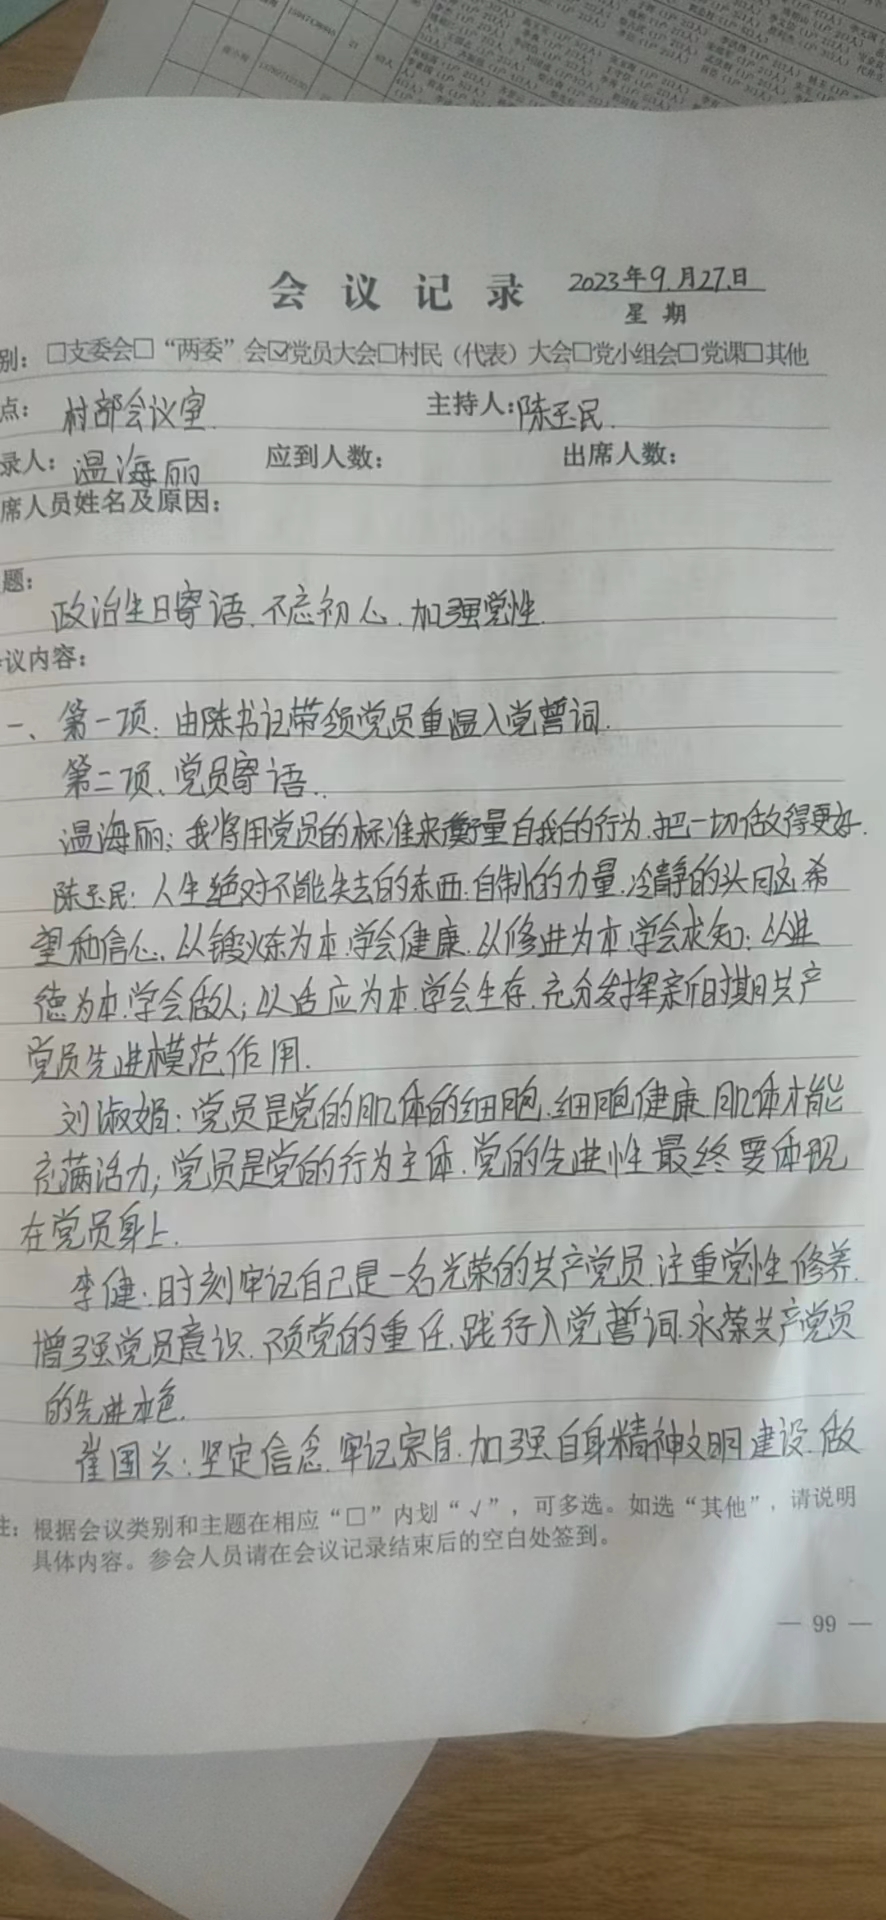 会议记录 2023年9月27日
星期
别：□支委会□“两委”会☑党员大会□村民（代表）大会□党小组会□党课□其他
点：村部会议室. 主持人：陈玉民.
录人：温海丽 应到人数： 出席人数：
席人员姓名及原因：
题：
政治生日寄语.不忘初心.加强党性.
议内容：
一、第一项：由陈书记带领党员重温入党誓词.
第二项、党员寄语..
温海丽：我将用党员的标准来衡量自我的行为.把一切做得更好.
陈玉民：人生绝对不能失去的东西.自制的力量.冷静的头脑.希
望和信心.以锻炼为本.学会健康.以修进为本.学会求知；以进
德为本.学会做人；以适应为本.学会生存.充分发挥新时期共产
党员先进模范作用.
刘淑娟：党员是党的肌体的细胞.细胞健康.肌体才能
充满活力；党员是党的行为主体.党的先进性最终要体现
在党员身上.
李健：时刻牢记自己是一名光荣的共产党员.注重党性修养.
增强党员意识.不负党的重任.践行入党誓词.永葆共产党员
的先进本色.
崔国兴：坚定信念.牢记宗旨.加强自身精神文明建设.做
注：根据会议类别和主题在相应“□”内划“√”，可多选。如选“其他”，请说明
具体内容。参会人员请在会议记录结束后的空白处签到。
— 99 —